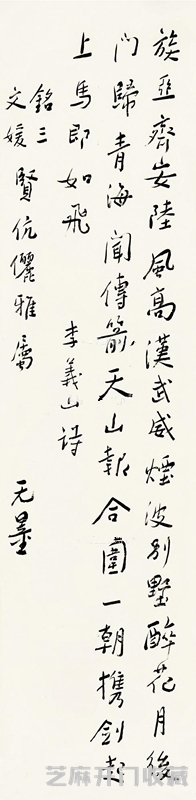 族亞齊安陸風高漢武威煙波別墅醉花月後
門歸青海聞傳箭天山報合圍一朝攜劍起
上馬即如飛
李義山詩
銘三
文媛
賢伉儷雅屬
无量
芝麻开门收藏